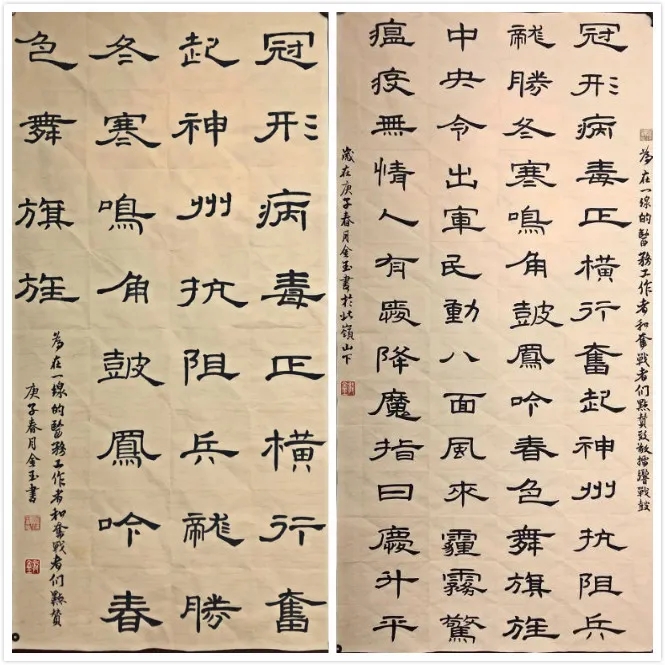 冠形病毒正橫行奮
起神州抗阻兵龍勝
冬寒鳴角鼓鳳吟春
色舞旗旌
為在一線的醫務工作者和奮戰者們點贊
庚子春月金玉書
為在一線的醫務工作者和奮戰者們點贊致敬擂響戰鼓
冠形病毒正橫行奮起神州抗阻兵
龍勝冬寒鳴角鼓鳳吟春色舞旗旌
中央令出軍民動八面風來霾霧驚
瘟疫無情人有愛降魔指日慶升平
歲在庚子春月金玉書於北嶺山下